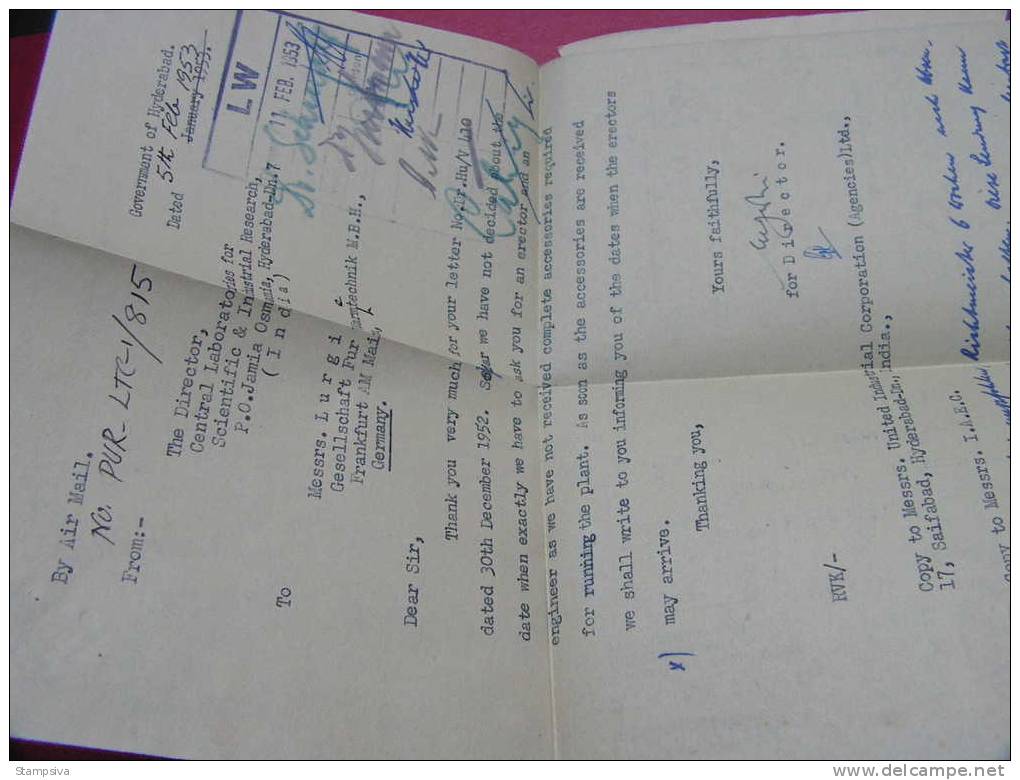 Government of Hyderabad.
Dated 5th Feb 1953
January 1953.
LW
11 FEB. 1953
By Air Mail.
No. PUR-LTC-1/815
From:-
The Director,
Central Laboratories for
Scientific & Industrial Research,
P.O. Jamia Osmania, Hyderabad-Dn.7
( I n d i a )
To
Messrs. L u r g i
Gesellschaft Fur Warmetechnik M.B.H.,
Frankfurt AM Main,
Germany.
Dear Sir,
Thank you very much for your letter No. Dr.Hu/V 410
dated 30th December 1952. So far we have not decided about the
date when exactly we have to ask you for an erector and an
engineer as we have not received complete accessories required
for running the plant. As soon as the accessories are received
we shall write to you informing you of the dates when the erectors
x) may arrive.
Thanking you,
Yours faithfully,
for D i r e c t o r.
RVK/-
Copy to Messrs. United Industrial Corporation (Agencies)Ltd.,
17, Saifabad, Hyderabad-Dn., India.,
Copy to Messrs. I.A.E.C.
6 Wochen
Stampsiva
www.delcampe.net